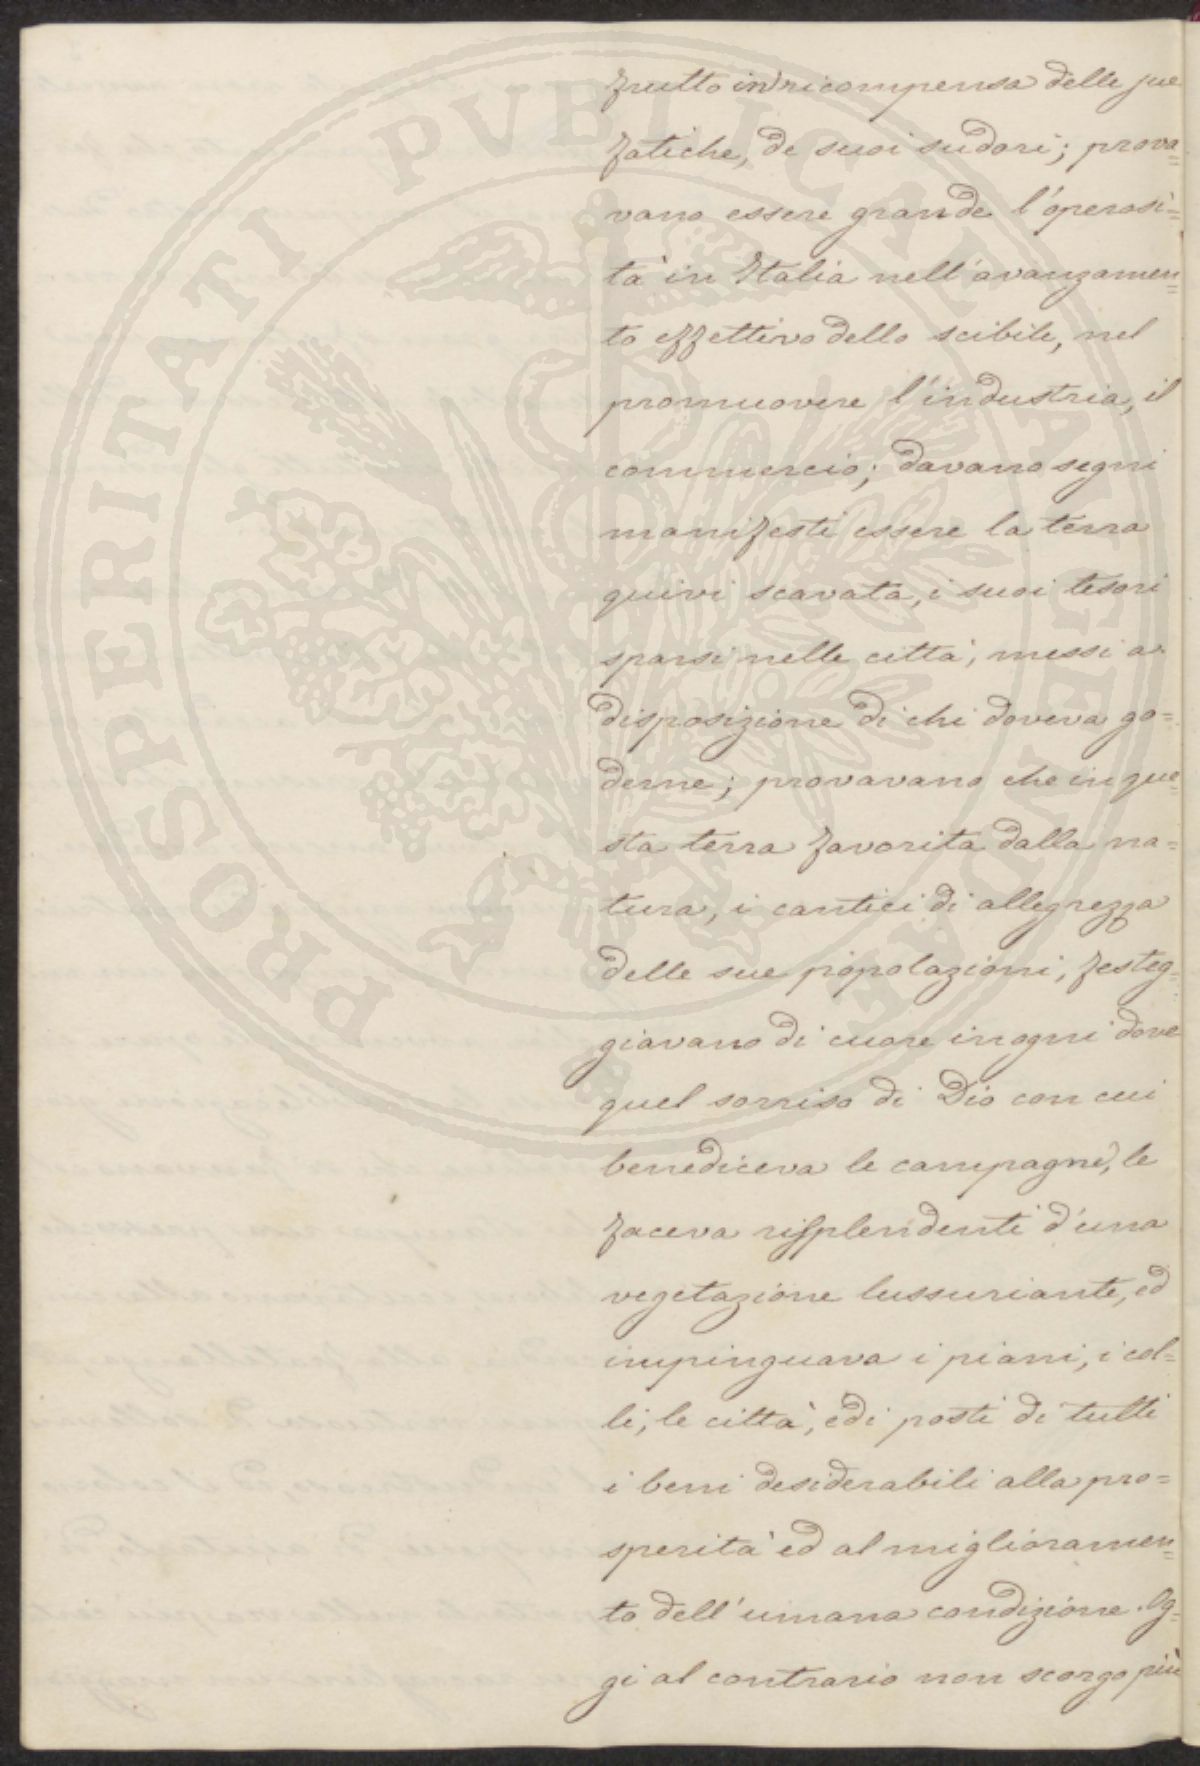 frutto in ricompensa delle sue
fatiche, de suoi sudori; prova=
vano essere grande l'operosi=
tà in Italia nell'avanzamen=
to effettivo dello scibile, nel
promuovere l'industria, il
commercio; davano segni
manifesti essere la terra
quivi scavata, i suoi tesori
sparsi nelle città, messi a
disposizione di chi doveva go=
derne; provavano che in que=
sta terra favorita dalla na=
tura, i cantici di allegrezza
delle sue popolazioni, festeg=
giavano di cuore in ogni dove
quel sorriso di Dio con cui
benediceva le campagne, le
faceva risplendenti d'una
vegetazione lussuriante, ed
impinguava i piani, i col=
li, le città, ed i posti di tutti
i beni desiderabili alla pro=
sperità ed al miglioramen=
to dell'umana condizione. Og=
gi al contrario non scorgo più
PROSPERITATI PUBLICAE AUGENDAE